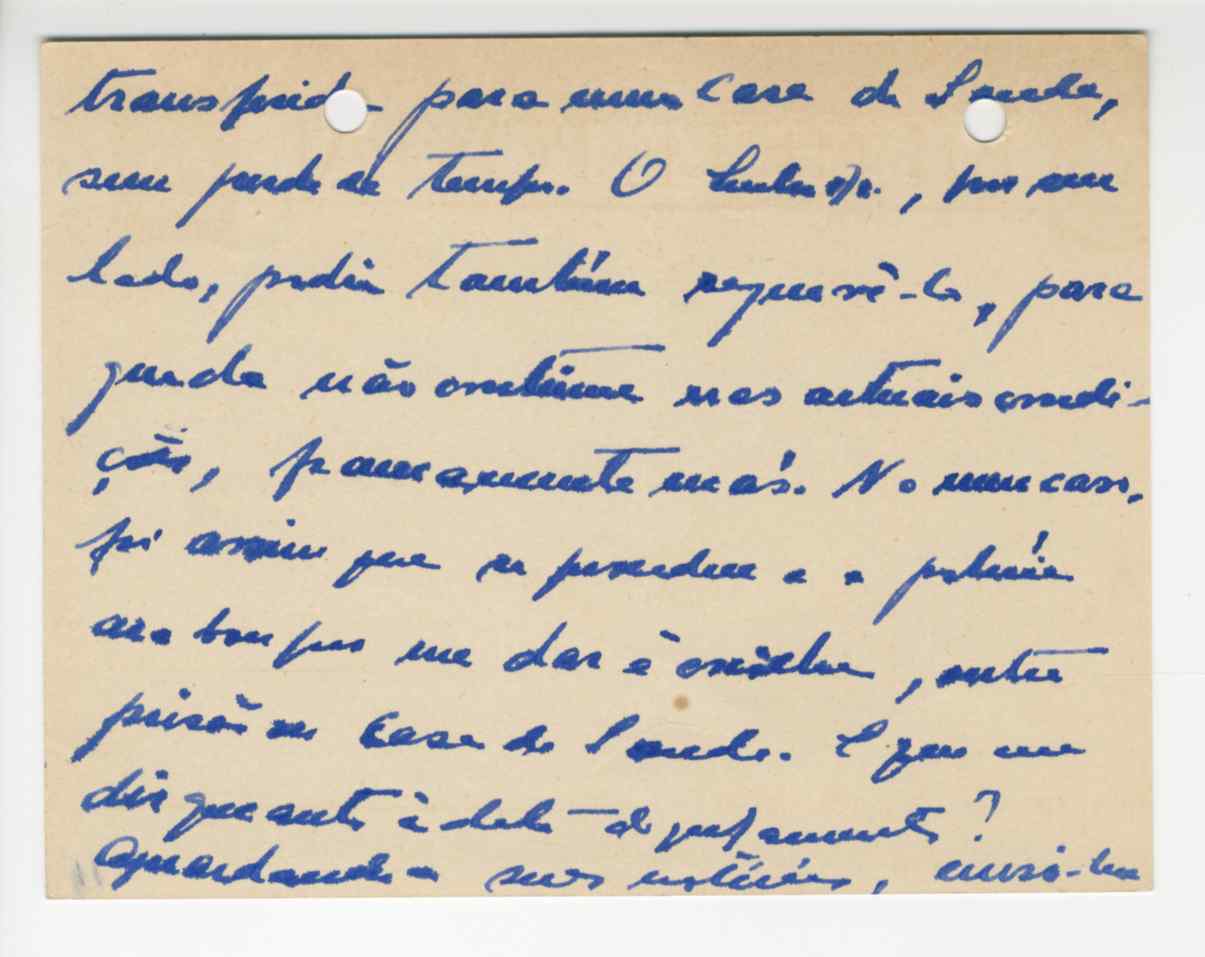 transferida para uma Casa de Saude,
sem perda de tempo. O Senhor Dr., por seu
lado, podia também requerê-lo, para
que ela não continue nas actuais condi-
ções, francamente más. No meu caso,
foi assim que se procedeu e a polícia
acabou por me dar à escolha, entre
prisão ou Casa de Saude. E que me
diz quanto à data do julgamento?
Aguardando as suas notícias, envio-lhe